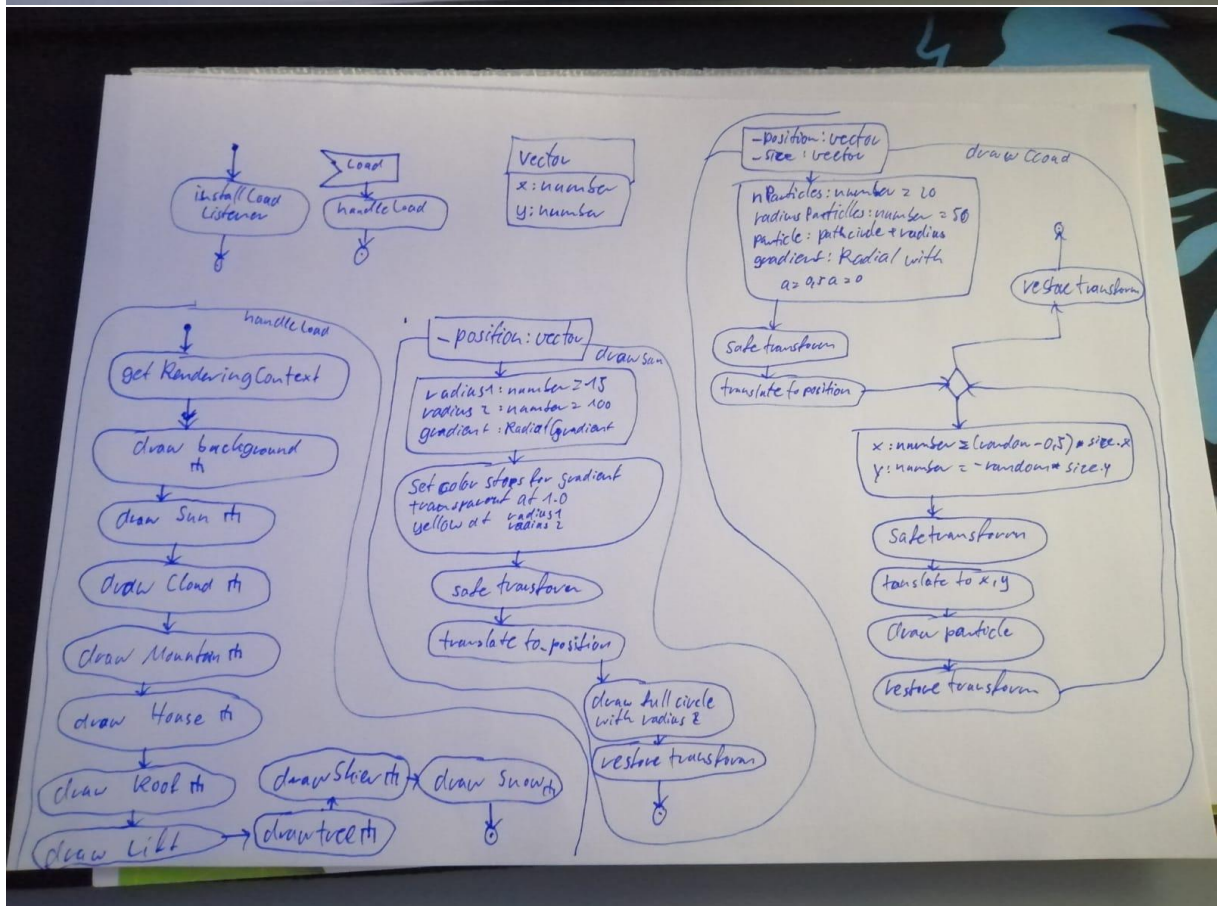 install Load
Listener
Load
handleLoad
Vector
x: number
y: number
handleLoad
get RenderingContext
draw background
draw Sun
draw Cloud
draw Mountain
draw House
draw Roof
draw Lift
draw tree
draw Skier
draw Snow
- position: vector
draw sun
radius1: number = 15
radius 2: number = 100
gradient: RadialGradient
Set color stops for gradient
transparent at 1.0
yellow at radius1
radius2
safe transform
translate to position
draw full circle
with radius 2
restore transform
- position: vector
- size: vector
draw Cload
nParticles: number = 20
radiusParticles: number = 50
particle: path circle + radius
gradient: Radial with
a = 0,5 a = 0
safe transform
translate to position
restore transform
x: number = (random - 0,5) * size.x
y: number = - random * size.y
Safe transform
translate to x, y
draw particle
restore transform